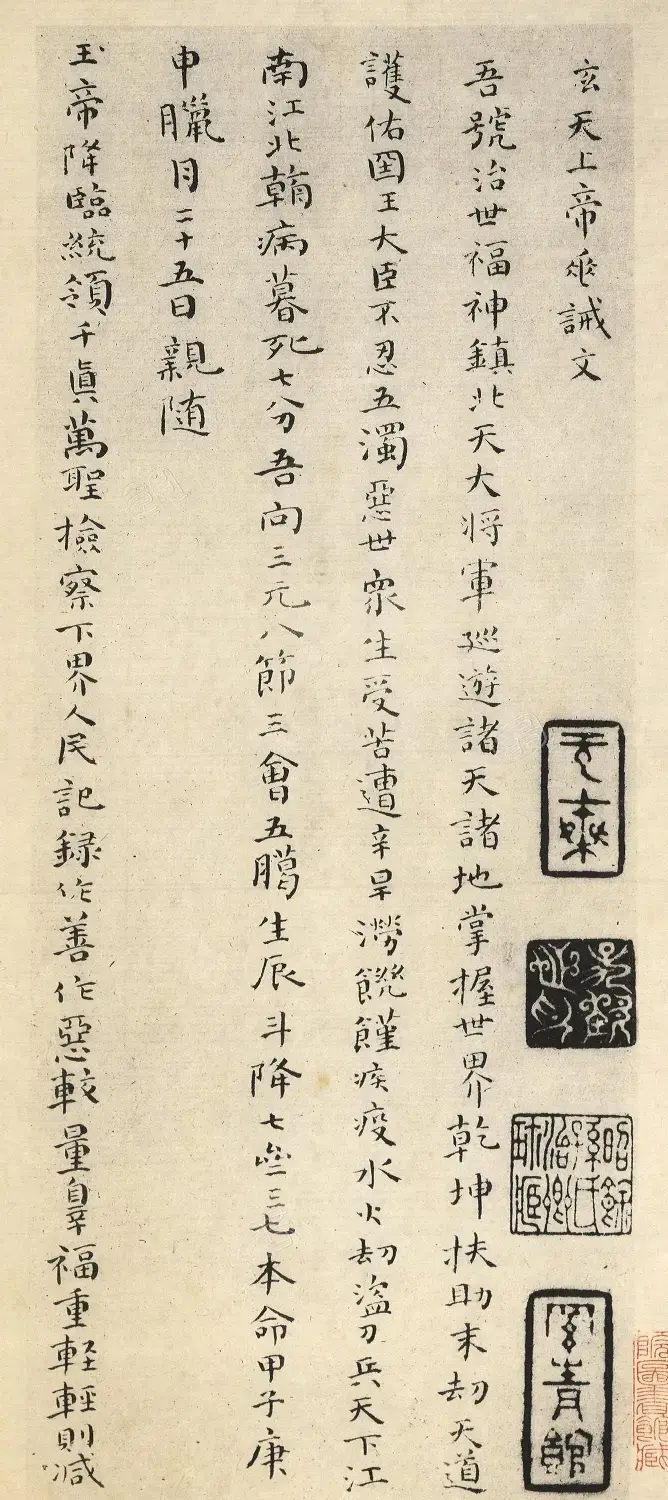 玄天上帝垂誡文
吾號治世福神鎮北天大將軍巡遊諸天諸地掌握世界乾坤扶助末劫天道
護佑国王大臣不忍五濁惡世衆生受苦遭辛旱澇饑饉疾疫水火劫盜刀兵天下江
南江北朝病暮死七分吾向三元八節三會五臈生辰斗降七壘三七本命甲子庚
申臘月二十五日親随
玉帝降臨統領千真萬聖檢察下界人民記録作善作惡較量辠福重軽輕則減